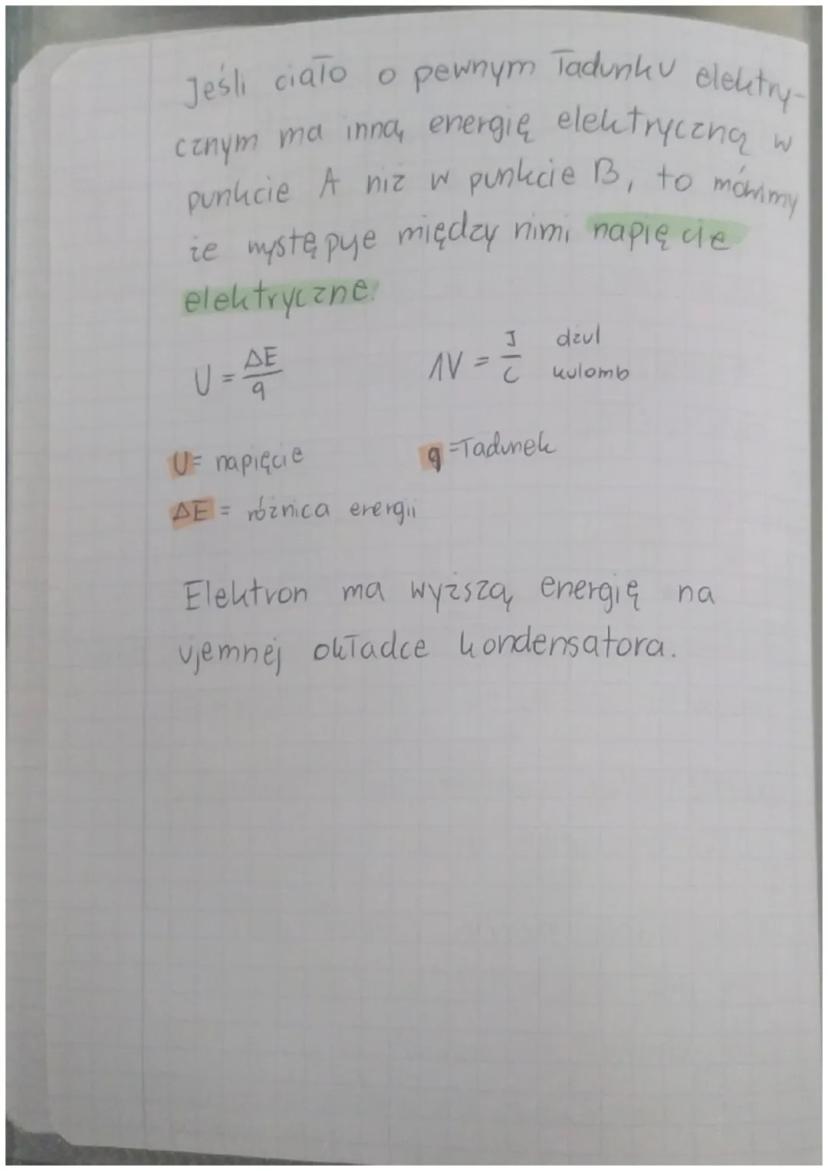 Jeśli ciało o pewnym ładunku elektry-
cznym ma inną energię elektryczną w
punkcie A niż w punkcie B, to mówimy
że występuje między nimi napięcie
elektryczne.
U = ΔE/q 1V = J/C dżul kulomb
U = napięcie q = ładunek
ΔE = różnica energii
Elektron ma wyższą energię na
ujemnej okładce kondensatora.